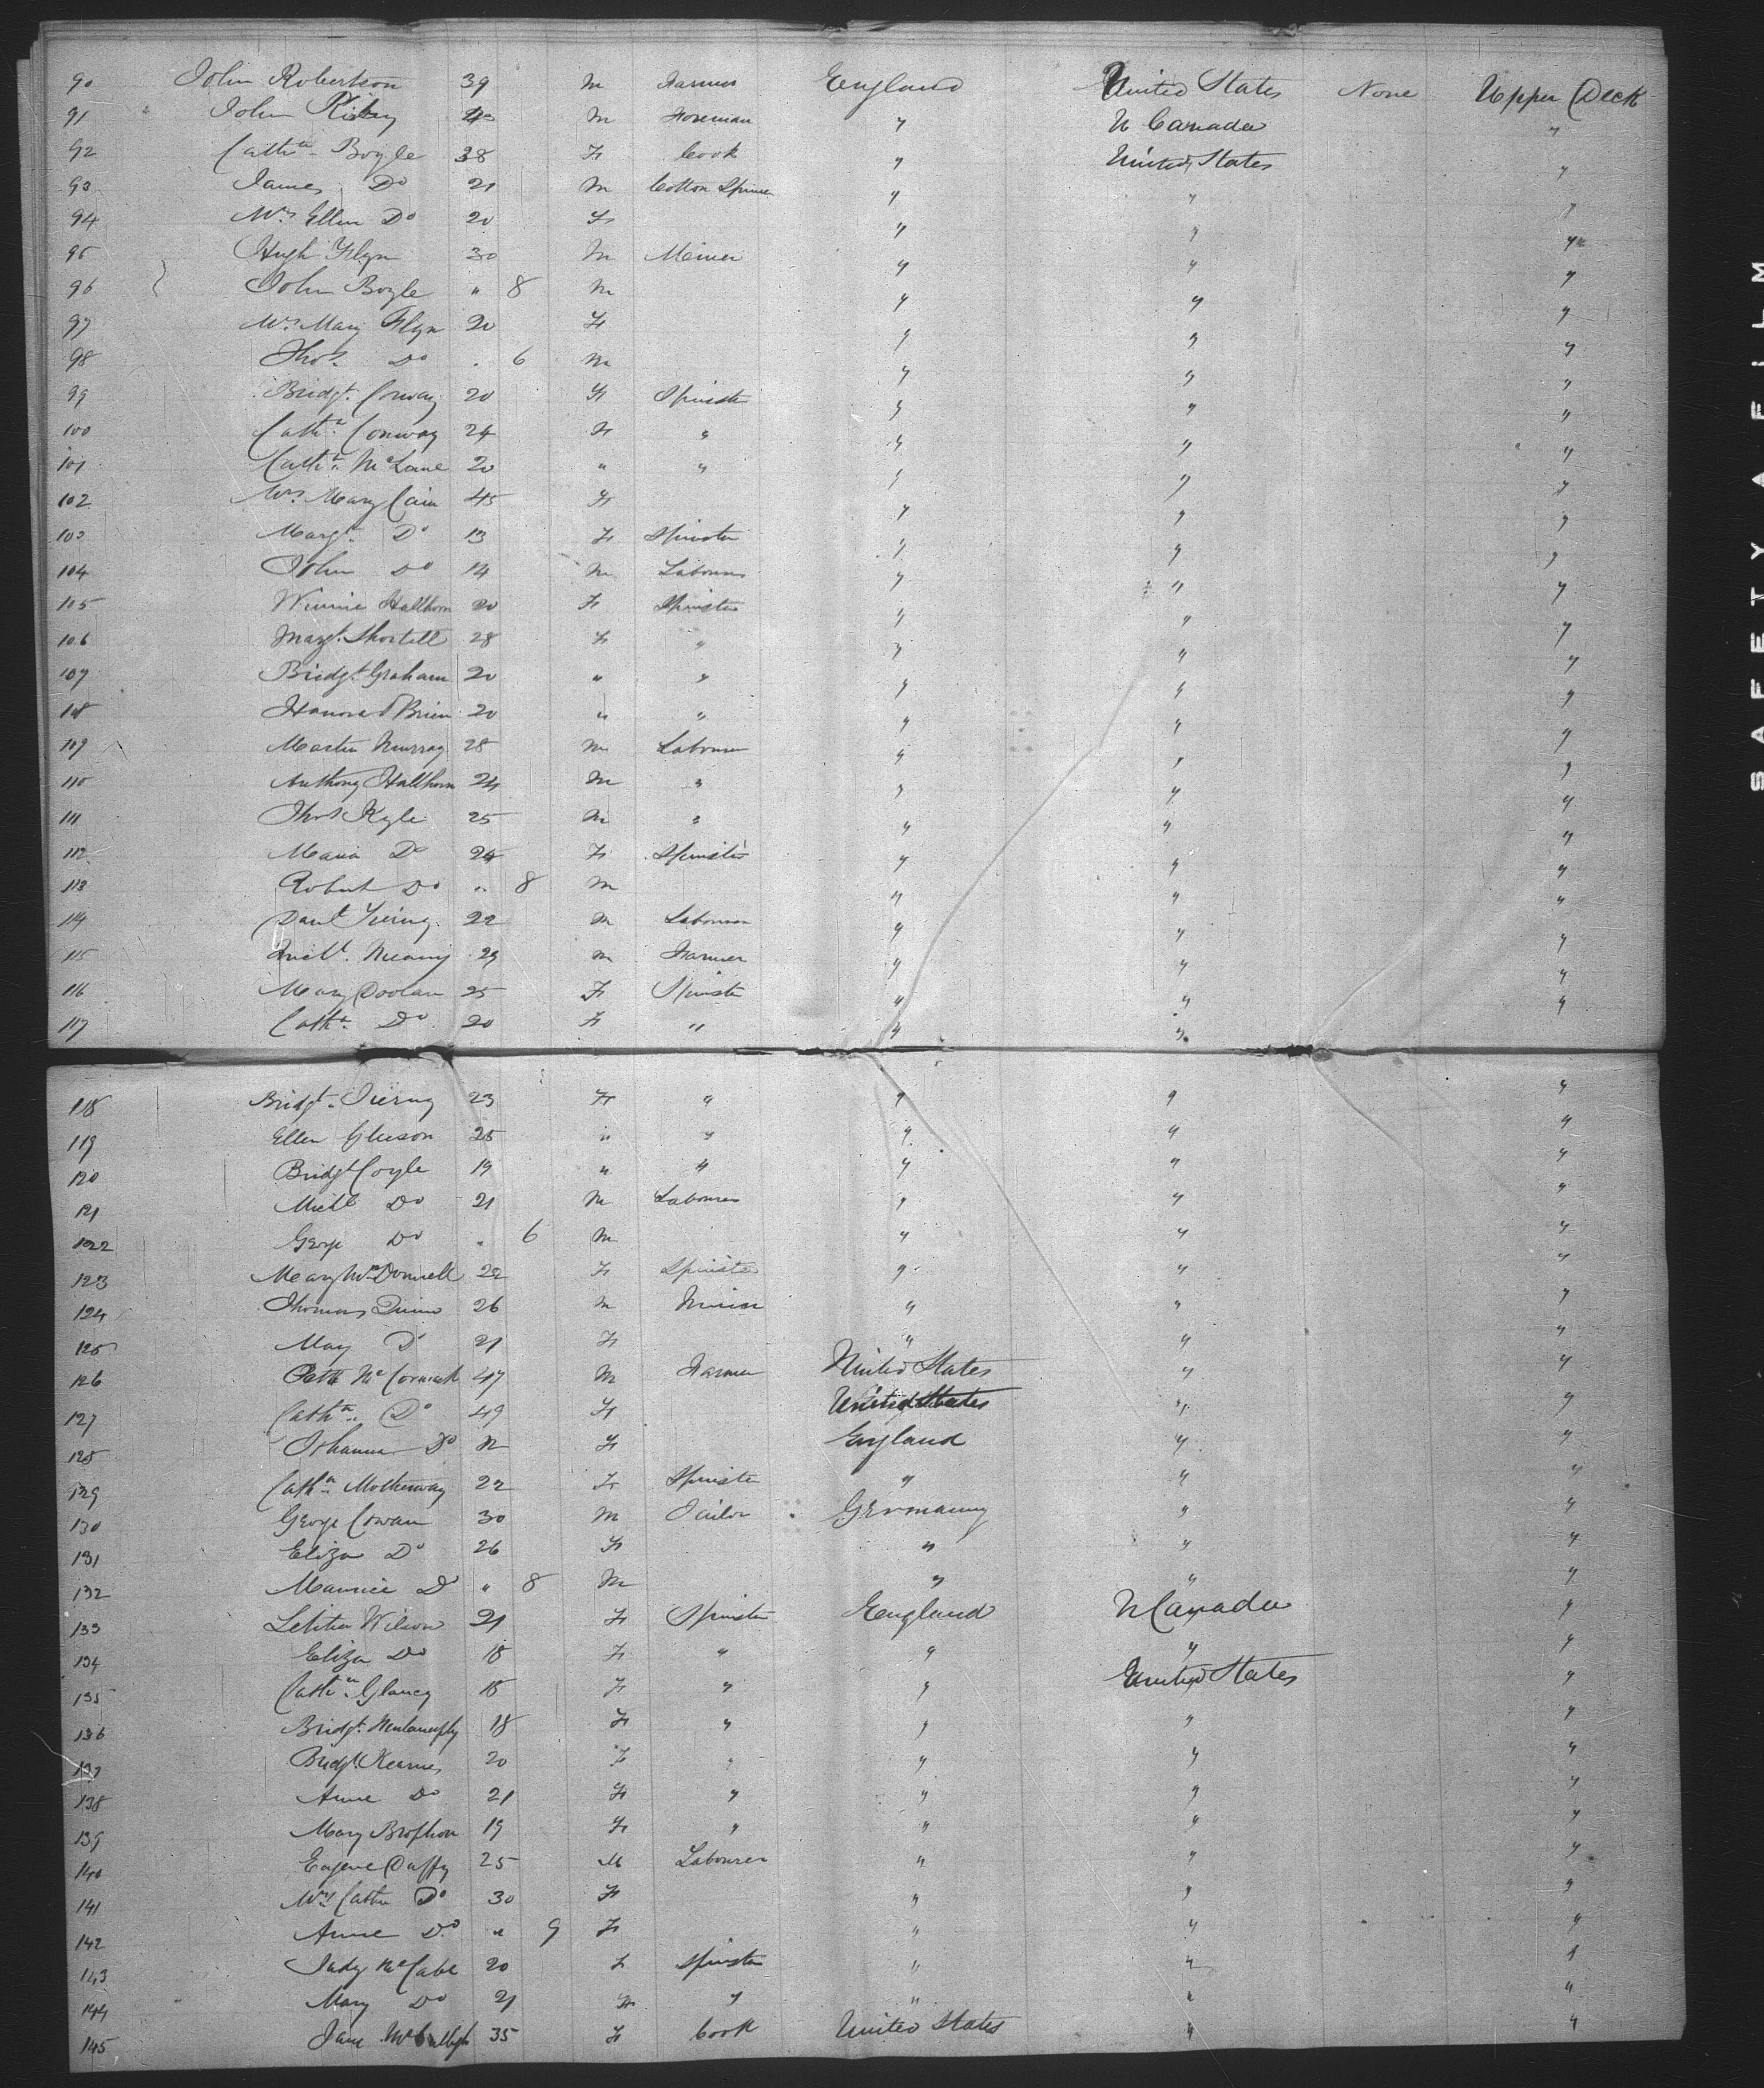 90 John Robertson 39 M Farmer England United States None Upper Deck
91 John 40 M Foreman " U Canada "
92 Cathn Boyle 38 F Cook " United States "
93 James Do 21 M Cotton Spinner " " "
94 Mrs Ellen Do 20 F " " "
95 Hugh Flyn 30 M Meiner " " "
96 John Boyle " 8 M " " "
97 Mrs Mary Flyn 20 F " " "
98 Thos Do . 6 M " " "
99 Bridgt. Conway 20 F Spinster " " "
100 Cathn Conway 24 F " " " "
101 Cathn McLane 20 " " " " "
102 Mrs Mary Cain 45 F " " "
103 Margt. Do 13 F Spinster " " "
104 John Do 14 M Labourer " " "
105 Winnie Hallhorn 20 F Spinster " " "
106 Margt. Shortell 28 F " " " "
107 Bridgt. Graham 20 " " " " "
108 Honora OBrien 20 " " " " "
109 Martin Murray 28 M Labourer " " "
110 Anthony Hallhorn 24 M " " " "
111 Thos Kyle 25 M " " " "
112 Maria Do 24 F Spinster " " "
113 Robert Do " 8 M " " "
114 Danl 22 M Labourer " " "
115 29 M Farmer " " "
116 Mary Doolan 25 F Spinster " " "
117 Cathn Do 20 F " " " "
118 Bridgt. 23 F " " " "
119 Ellen Gleeson 25 " " " " "
120 Bridgt Coyle 19 " " " " "
121 Michl Do 21 M Labourer " " "
122 George Do " 6 M " " "
123 Mary McDonnell 22 F Spinster " " "
124 Thomas Quinn 26 M " " "
125 May Do 21 F " " "
126 Patk McCormack 47 M Farmer United States " "
127 Cathn Do 49 F United States " "
128 Johanna Do F England " "
129 Cathn Motherway 22 F Spinster " " "
130 George Cowan 30 M Tailor Germany " "
131 Eliza Do 26 F " " "
132 Maurice Do " 8 M " " "
133 Letitia Wilson 21 F Spinster England U Canada "
134 Eliza Do 18 F " " " "
135 Cathn Glancy 18 F " " United States "
136 Bridgt. 18 F " " " "
137 Bridgt. Kearnes 20 F " " " "
138 Anne Do 21 F " " " "
139 Mary Brophon 19 F " " " "
140 Eugene Duffy 25 M Labourer " " "
141 Mrs Cathn Do 30 F " " "
142 Anne Do " 9 F " " "
143 Judy McCabe 20 F Spinster " " "
144 Mary Do 21 F " " " "
145 Jane 35 F Cook United States " "
SAFETY FILM